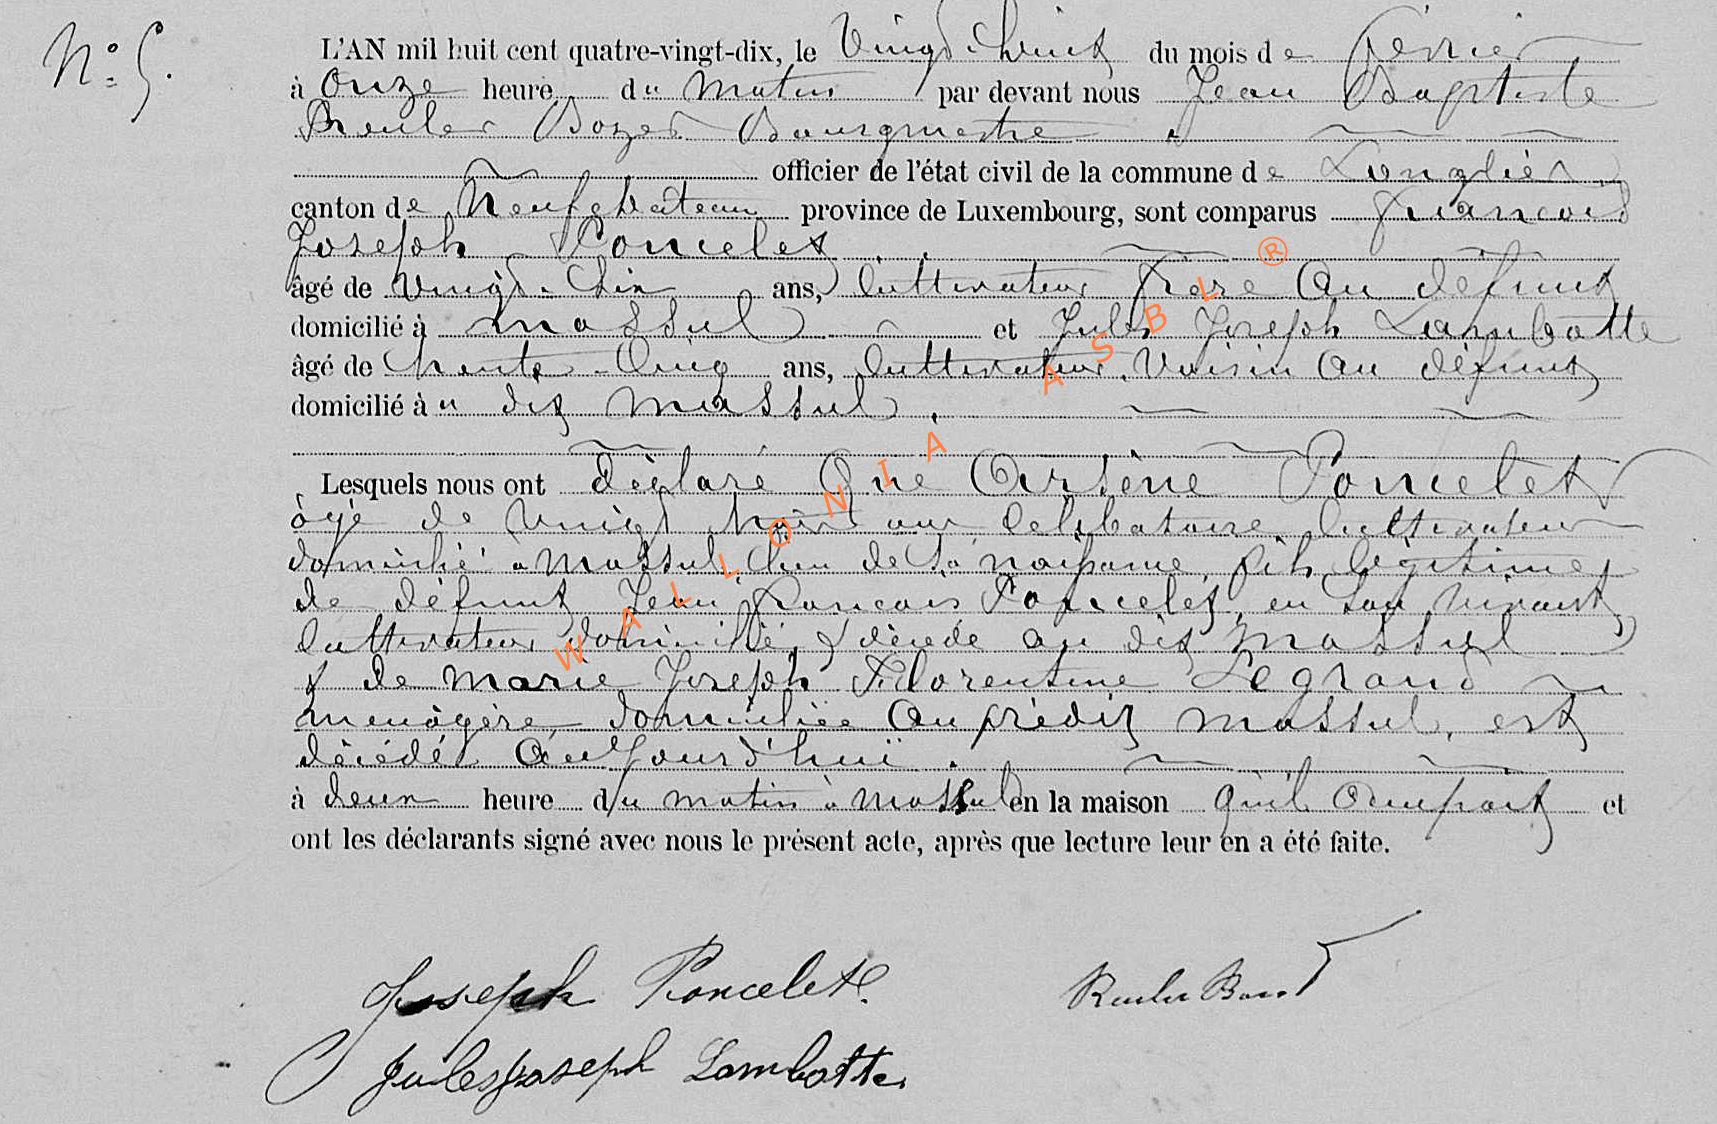 N° 5.
L'AN mil huit cent quatre-vingt-dix, le Vingt-huit du mois de Février
à Onze heure du Matin par devant nous Jean Baptiste
Bourgmestre
officier de l'état civil de la commune de Longlier
canton de Neufchateau province de Luxembourg, sont comparus François
Joseph Poncelet
âgé de Vingt- ans, Cultivateur frère au défunt
domicilié à Massul et Jules Joseph Lambotte
âgé de trente-Cinq ans, Cultivateur, Voisin au défunt
domicilié à u dit Massul.
Lesquels nous ont déclaré Que Arsène Poncelet
âgé de Vingt ans Célibataire Cultivateur
domicilié à Massul, lieu de sa naissance, fils légitime
de défunt Jean François Poncelet, en son vivant
Cultivateur domicilié & décédé au dit Massul
& de Marie Joseph Florentine Legrand
ménagère domiciliée au prédit Massul, est
décédé Aujourd'hui.
à deux heure du matin à Massul en la maison qu'il occupait et
ont les déclarants signé avec nous le présent acte, après que lecture leur en a été faite.
Joseph Poncelet
Jules Joseph Lambotte
WALLONIA ASBL ®